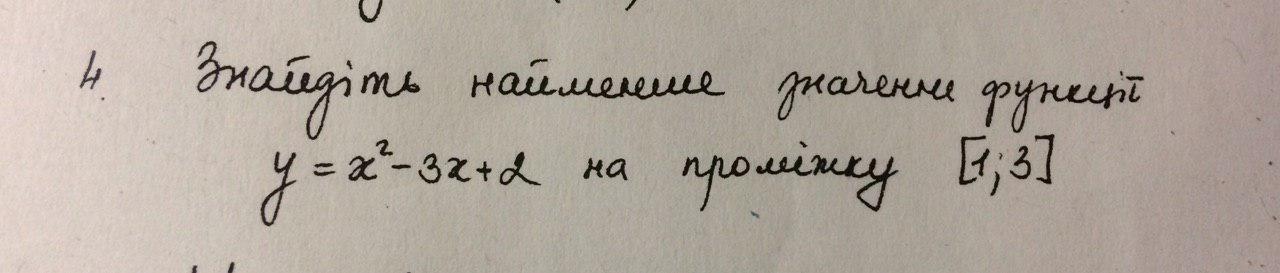 4. Знайдіть найменше значення функції
y = x² - 3x + 2 на проміжку [1; 3]